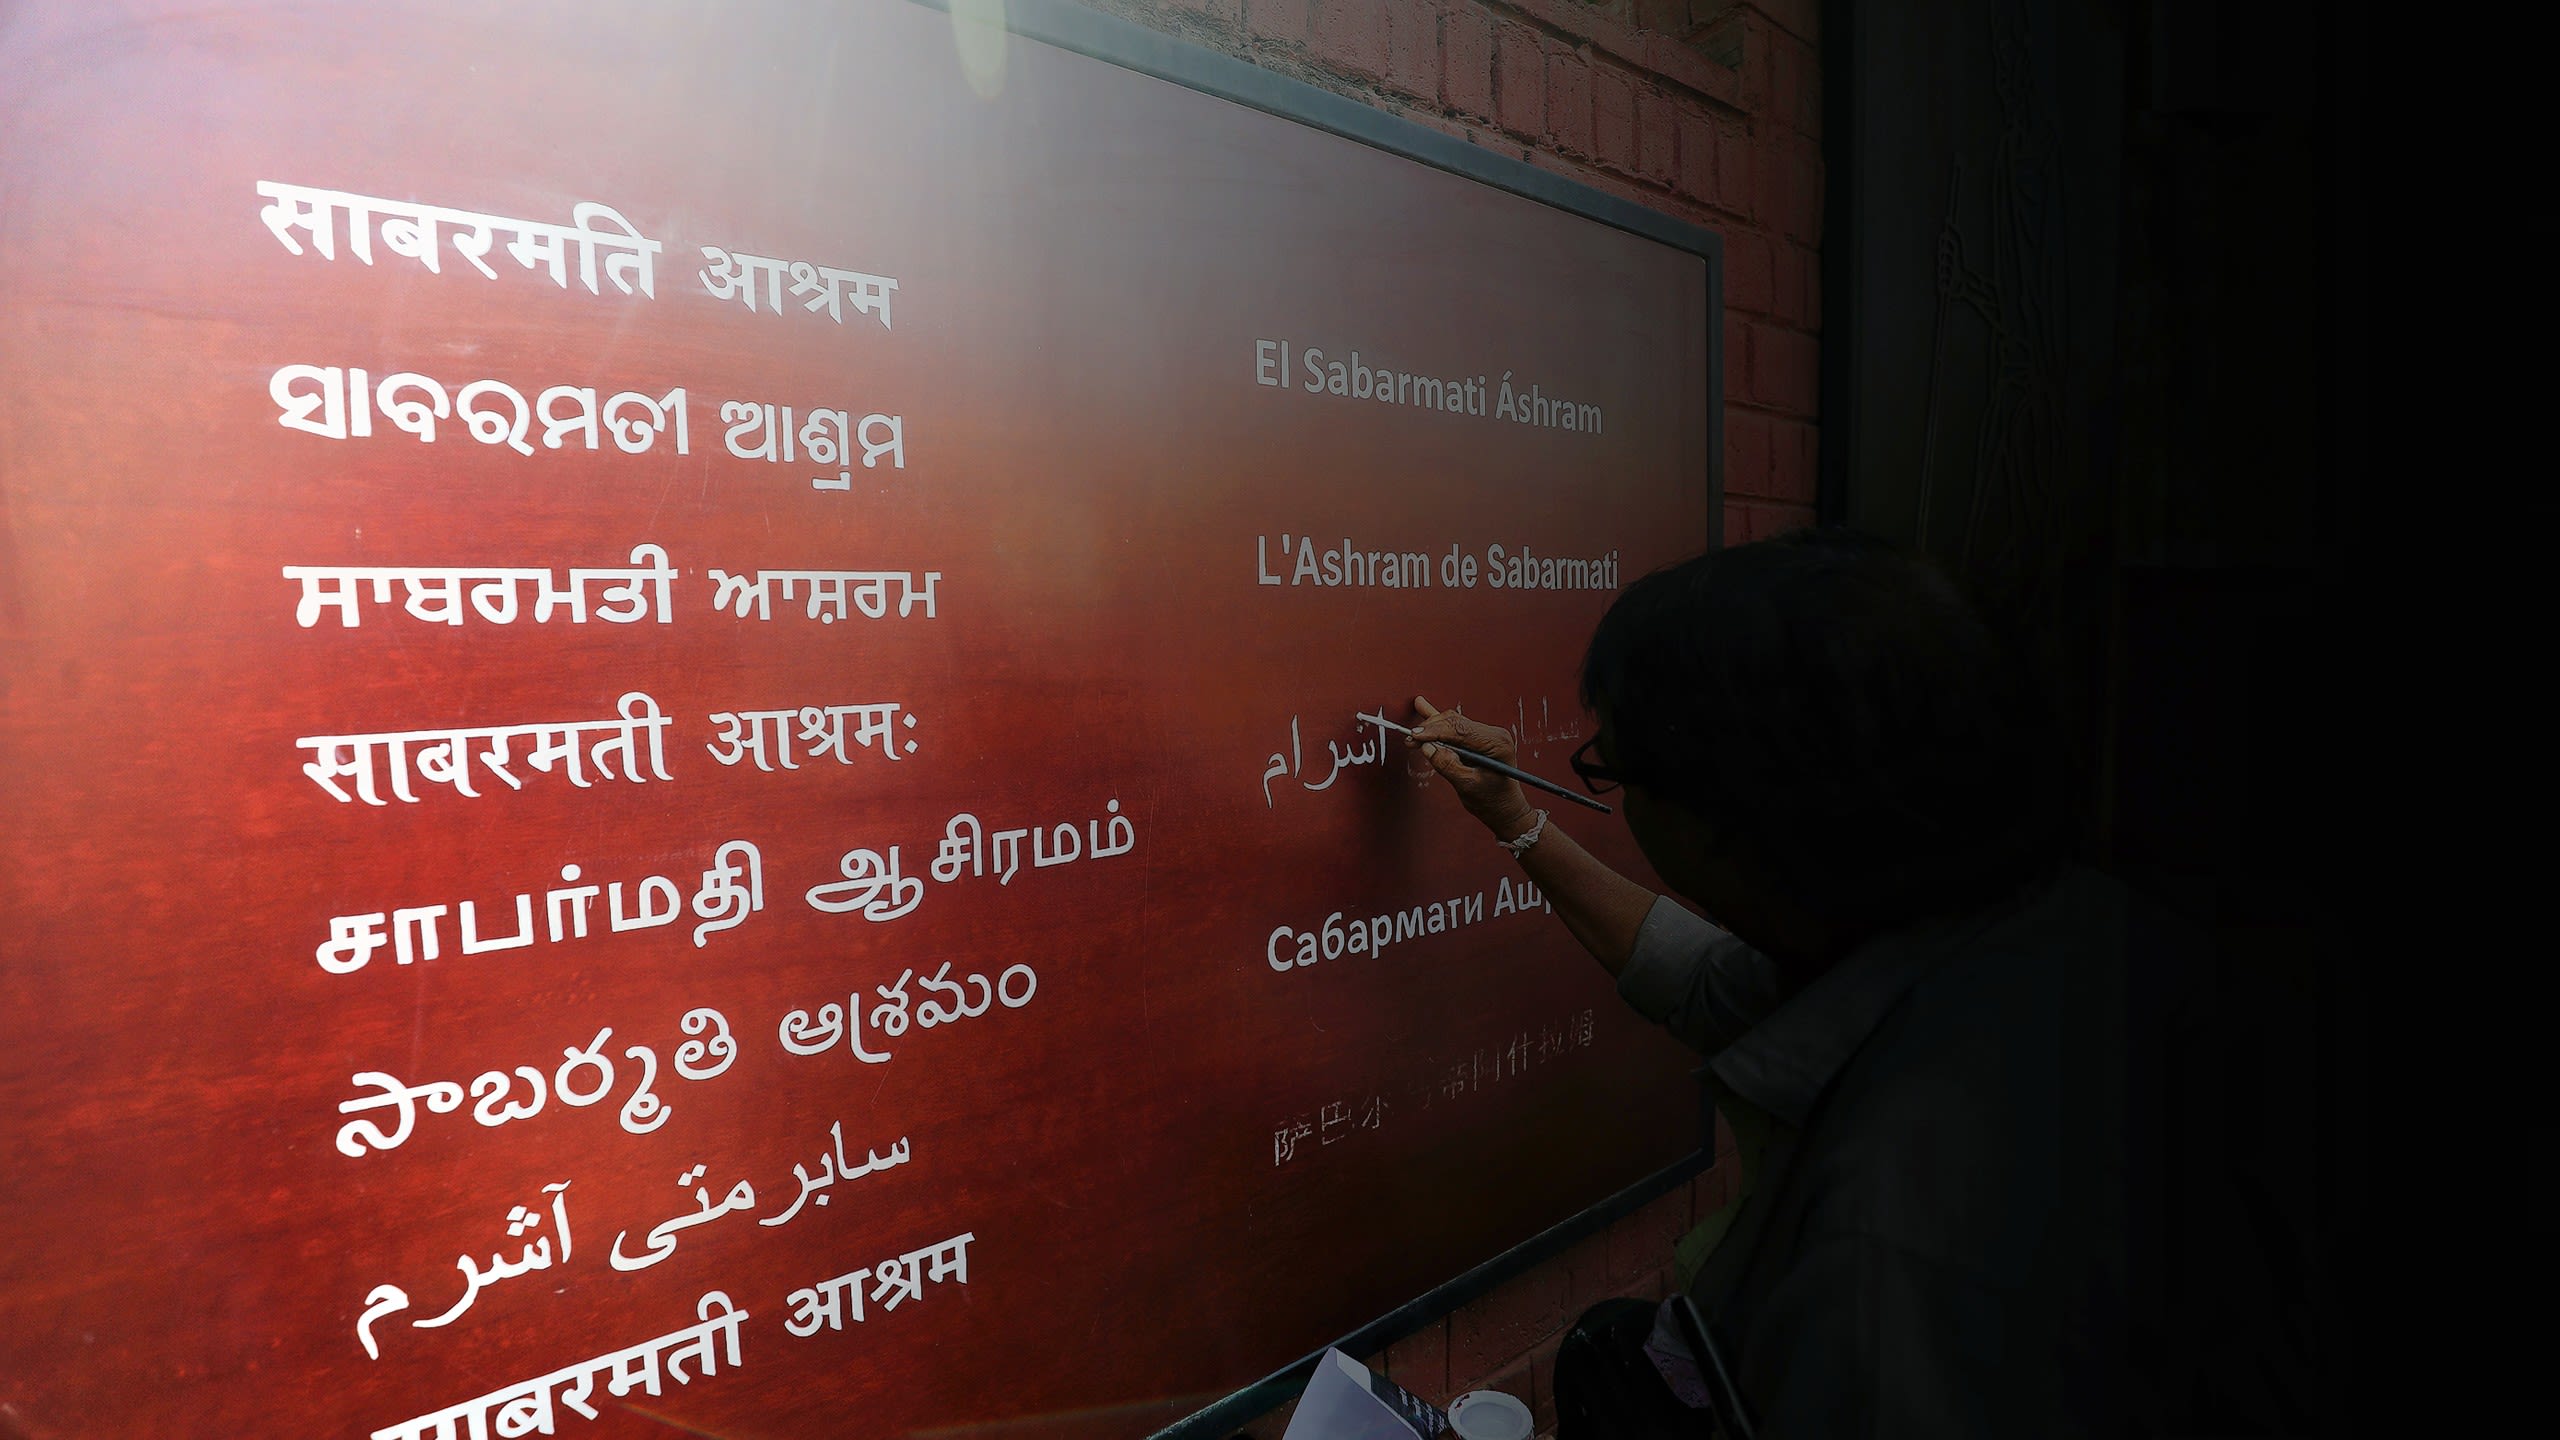 साबरमति आश्रम
ସାବରମତୀ ଆଶ୍ରମ
ਸਾਬਰਮਤੀ ਆਸ਼ਰਮ
साबरमती आश्रमः
சாபர்மதி ஆசிரமம்
సాబర్మతి ఆశ్రమం
سابرمتی آشرم
साबरमती आश्रम
El Sabarmati Áshram
L'Ashram de Sabarmati
اشرام
Сабармати
萨巴尔 蒂阿什拉姆